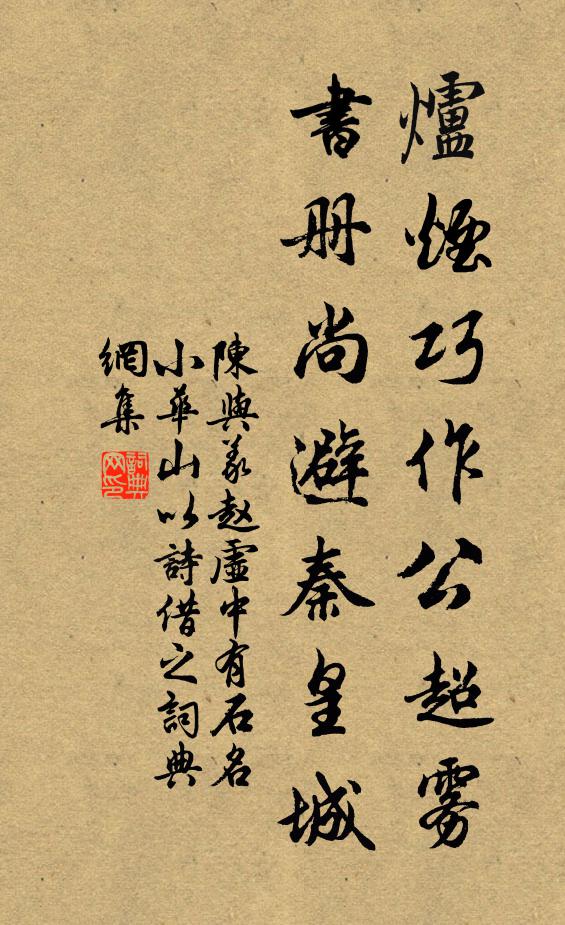 爐煙巧作公超雾
書册尚避秦皇城
陳與義赵虚中有石名
小華山以詩借之詞典
網集
詞典
网印